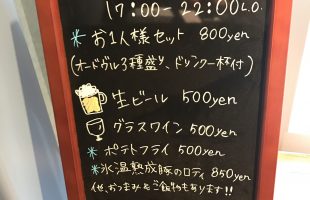 17:00-22:00 L.O.
*お1人様セット 800yen
(オードヴル3種盛り、ドリンク一杯付)
生ビール 500yen
グラスワイン 500yen
*ポテトフライ 500yen
*氷温熟成豚のロティ 850yen
他、おつまみ&ご飯ものもあります!!